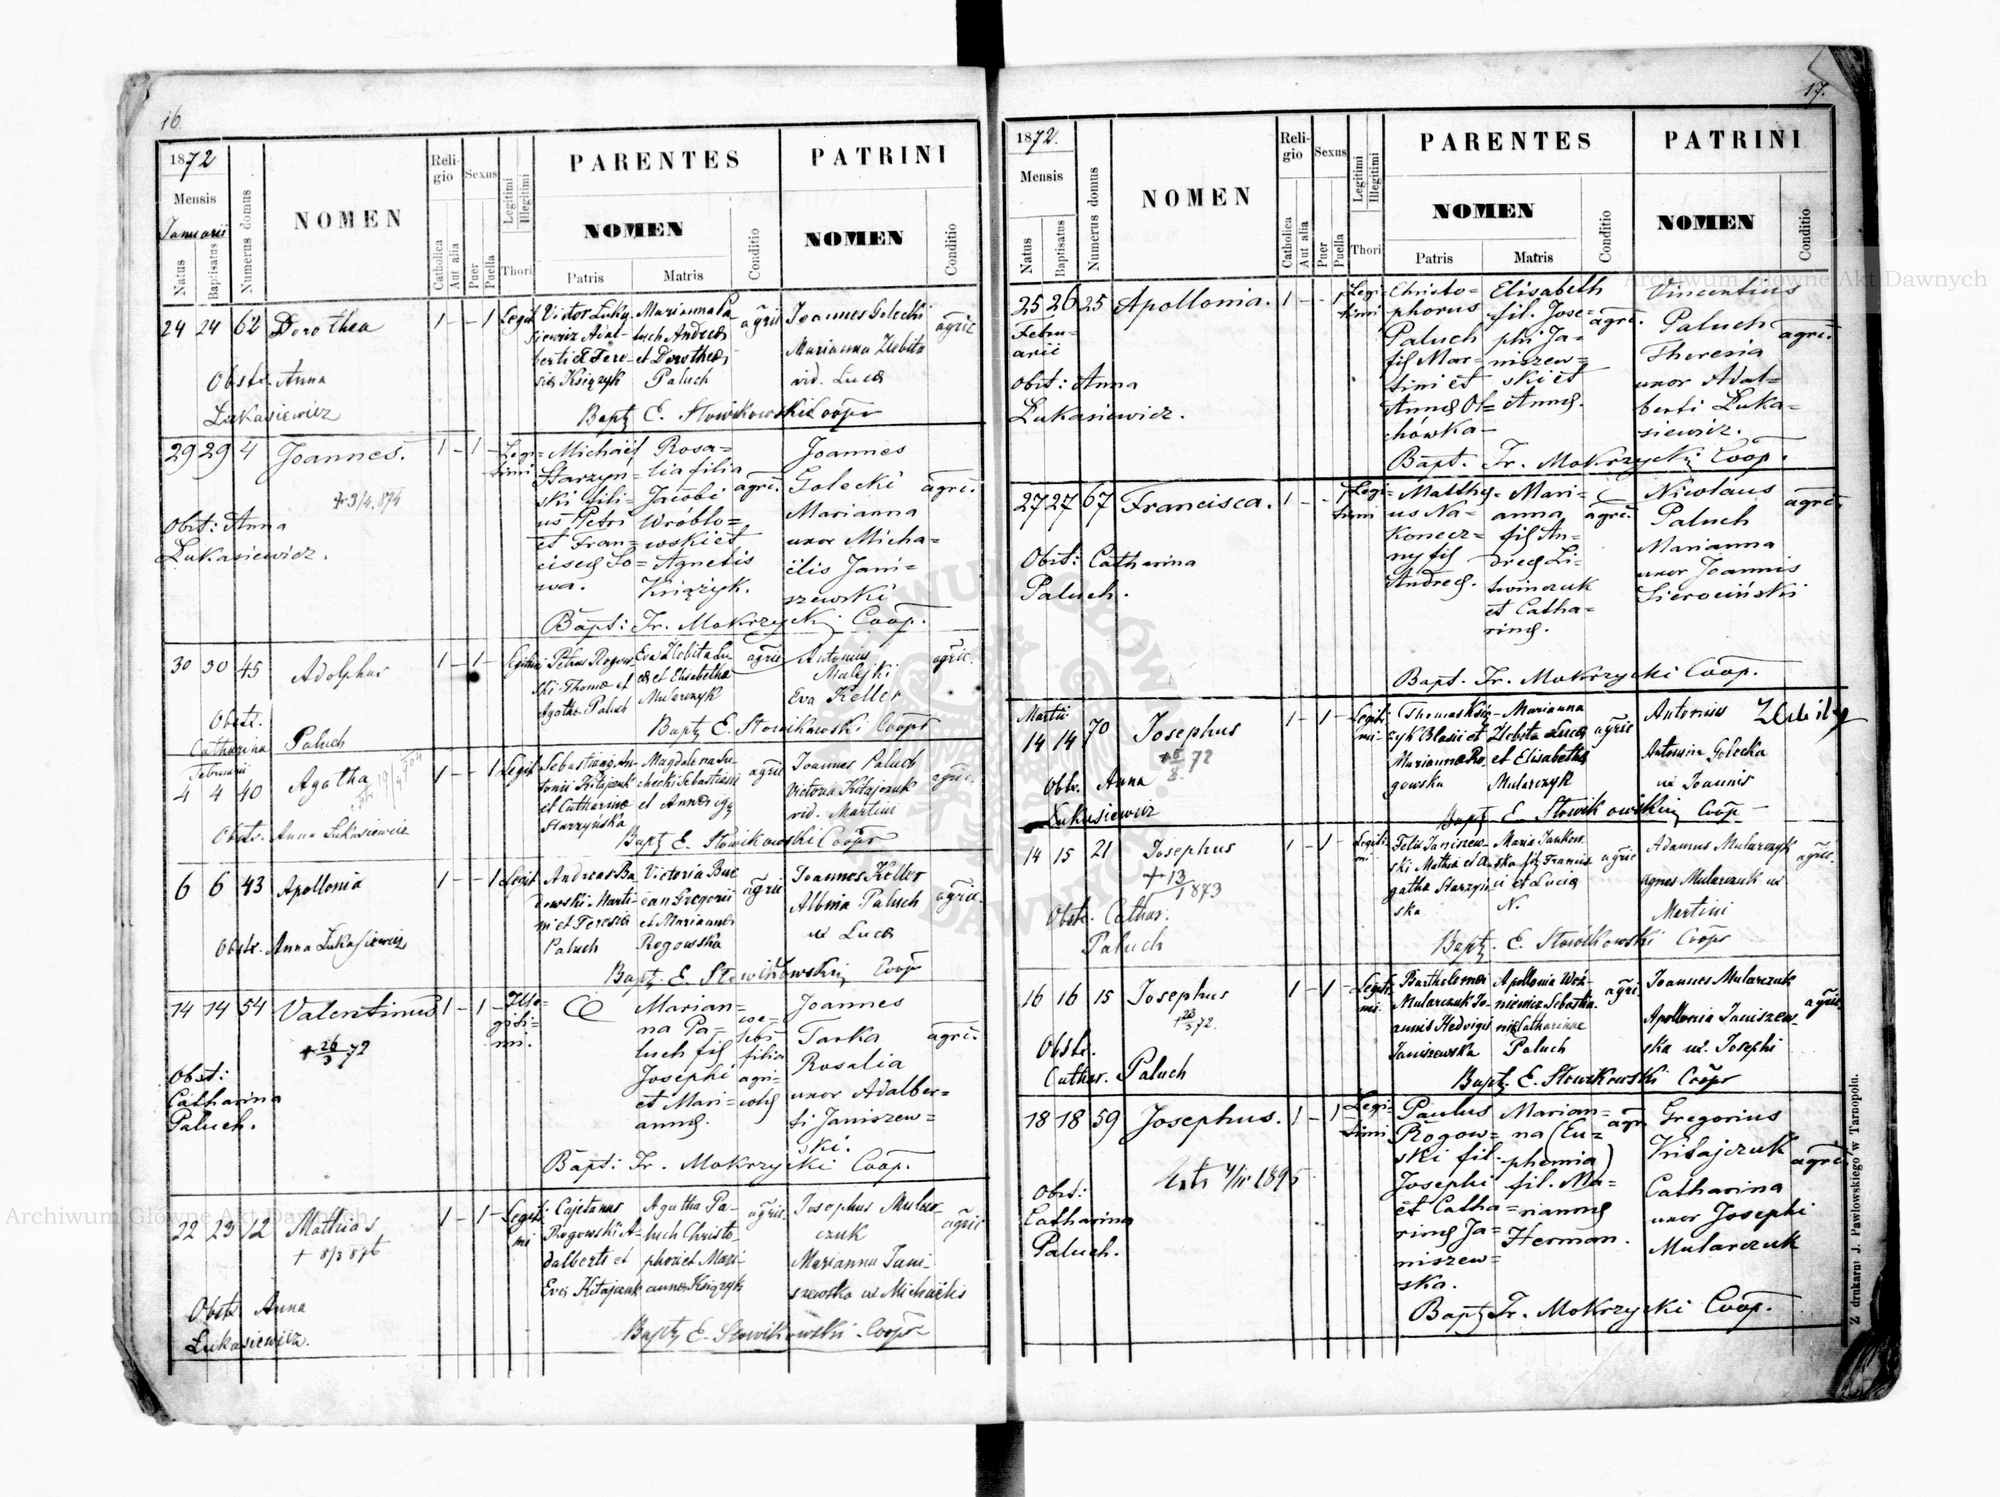 16.
1872
Mensis
Januarii
Natus
Baptisatus
Numerus domus
NOMEN
Religio
Catholica
Aut alia
Sexus
Puer
Puella
Legitimi
Illegitimi
Thori
PARENTES
NOMEN
Patris
Matris
Conditio
PATRINI
NOMEN
Conditio
24 24 62 Dorothea 1 - - 1 Legit
Obstr. Anna
Lukasiewicz
Victor Luka
siewicz Adal-
berti et Tere-
siæ Książyk
Marianna Pa
luch Andreæ
et Dorotheæ
Paluch
agric
Joannes Golecki
Marianna Zlebita
vid. Lucæ
agric
Bapt. E. Słowikowski Coopr
29 29 4 Joannes. 1 - 1 - Legi-
timi
+ 3/4. 874
Obst: Anna
Lukasiewicz.
Michael
Starzyń-
ski fili-
us Petri
et Fran-
ciscæ So-
wa.
Rosa-
lia filia
Jacobi
Wróblo-
wski et
Agnetis
Książyk.
agri.
Joannes
Golecki
Marianna
uxor Micha-
ëlis Jani-
szewski
agri.
Bapt: Fr. Mokrzycki Coop.
30 30 45 Adolphus 1 - 1 - Legitimi
Obstr.
Catharina Paluch
Petrus Rogow-
ski Thomæ et
Agathæ Paluch
Eva Zlebita Lu
cæ et Elisabethæ
Mularczyk
agric
Antonius
Malejki
Eva Keller
agric.
Bapt. E. Słowikowski Coopr
Februarii
4 4 40 Agatha 1 - - 1 Legit
Obstr. Anna Lukasiewicz
Sebastianus An-
tonii Kitajczuk
et Catharinæ
Starzyńska
Magdalena Su
checki Sebastiani
et Annæ
agric
Joannes Paluch
Victoria Kitajczuk
vid. Martini
agric.
Bapt. E. Słowikowski Coopr
6 6 43 Apollonia 1 - - 1 Legit
Obstr. Anna Lukasiewicz
Andreas Ba
dowski Marti-
ni et Teresiæ
Paluch
Victoria Buc
Gregorii
et Mariannæ
Rogowska
agric
Joannes Keller
Albina Paluch
ux Lucæ
agric.
Bapt. E. Słowikowski Coopr
14 14 54 Valentinus 1 - 1 - Ille-
giti-
mi.
+ 26/3 72
Obst:
Catharina
Paluch.
Marian-
na Pa-
luch fil
Josephi
et Mari-
annæ.
filia
agri-
colæ
Joannes
Tarka
Rosalia
uxor Adalber-
ti Janiszew-
ski.
agri.
Bapt: Fr. Mokrzycki Coop.
22 23 12 Mathias 1 - 1 - Legiti
mi
+ 8/3 876
Obstr Anna
Lukasiewicz.
Cajetanus
Rogowski A-
dalberti et
Evæ Kitajczuk
Agatha Pa-
luch Christo-
phori et Mari-
annæ Książyk
agric.
Josephus Mular-
czuk
Marianna Jani-
szewska ux Michaëlis
agric
Bapt. E. Słowikowski Coopr
17.
1872.
Mensis
Natus
Baptisatus
Numerus domus
NOMEN
Religio
Catholica
Aut alia
Sexus
Puer
Puella
Legitimi
Illegitimi
Thori
PARENTES
NOMEN
Patris
Matris
Conditio
PATRINI
NOMEN
Conditio
25 26 25 Apollonia. 1 - - 1 Legi-
timi
Febru-
arii
Obst: Anna
Lukasiewicz.
Christo-
phorus
Paluch
fil Mar-
tini et
Annæ Ol-
chówka
Elisabeth
fil. Jose-
phi Ja-
niszew-
ski et
Annæ.
agri.
Vincentius
Paluch
Theresia
uxor Adal-
berti Luka-
siewicz.
agri.
Bapt. Fr. Mokrzycki Coop.
27 27 67 Francisca. 1 - - 1 Legi-
timi
Obst: Catharina
Paluch.
Matthæ-
us Na-
konecz-
ny fil
Andreæ.
Mari-
anna
fil An-
dreæ Li-
twinczuk
et Catha-
rinæ.
agri.
Nicolaus
Paluch
Marianna
uxor Joannis
Sierociński
agri.
Bapt. Fr. Mokrzycki Coop.
Martii
14 14 70 Josephus 1 - 1 - Legiti-
mi
+ 5/8 72
Obtr. Anna
Lukasiewicz
Thomas Książ-
zyk Blasii et
Mariannæ Ro-
gowska
Marianna
Zlebita Lucæ
et Elisabethæ
Mularczyk
agric
Antonius Zlebity
Antonina Golecka
ux Joannis
Bapt. E. Słowikowski Coop
14 15 21 Josephus 1 - 1 - Legiti-
mi
+ 13/ 1873
Obstr. Cathar.
Paluch
Felix Janiszew-
ski Mathiæ et A-
gathæ Starzyń-
ska
Maria Jankow-
ska fil Francis-
ci et Luciæ
N.
agric
Adamus Mularczyk
Agnes Mularczuk ux
Martini
agric.
Bapt. E. Słowikowski Coopr
16 16 15 Josephus 1 - 1 - Legiti
mi
+ 23/3 72.
Obstr.
Cathar. Paluch
Bartholomæi
Mularczuk Jo-
annis Hedvigis
Janiszewska
Apollonia Woź-
niewicz Sebastia-
ni Catharinae
Paluch
agri.
Joannes Mularczuk
Apollonia Janiszew-
ska ux. Josephi
agric.
Bapt. E. Słowikowski Coopr
18 18 59 Josephus. 1 - 1 - Legi-
timi
1895
Obst:
Catharina
Paluch.
Paulus
Rogow-
ski fil.
Josephi
et Catha-
rinæ Ja-
niszew-
ska.
Marian-
na (Eu-
phemia)
fil. Ma-
riannæ
Herman.
agri
Gregorius
Kitajczuk
Catharina
uxor Josephi
Mularczuk
agri.
Bapt. Fr. Mokrzycki Coop.
Z drukarni J. Pawłowskiego w Tarnopolu.
Archiwum Główne Akt Dawnych
Archiwum Główne Akt Dawnych
ARCHIWUM GŁÓWNE AKT DAWNYCH